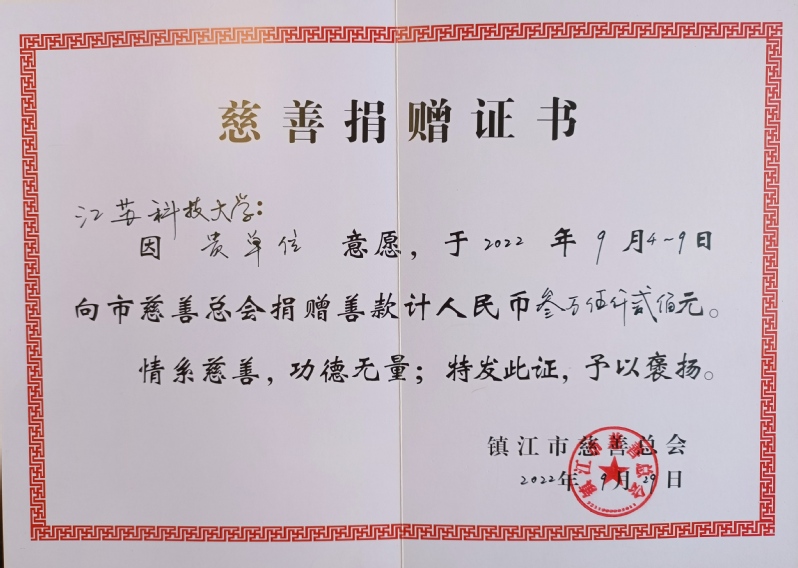 慈善捐赠证书
江苏科技大学:
因 贵单位 意愿，于2022年9月4~9日
向市慈善总会捐赠善款计人民币叁万伍仟贰佰元。
情系慈善，功德无量；特发此证，予以褒扬。
镇江市慈善总会
2022年9月29日
镇江市慈善总会